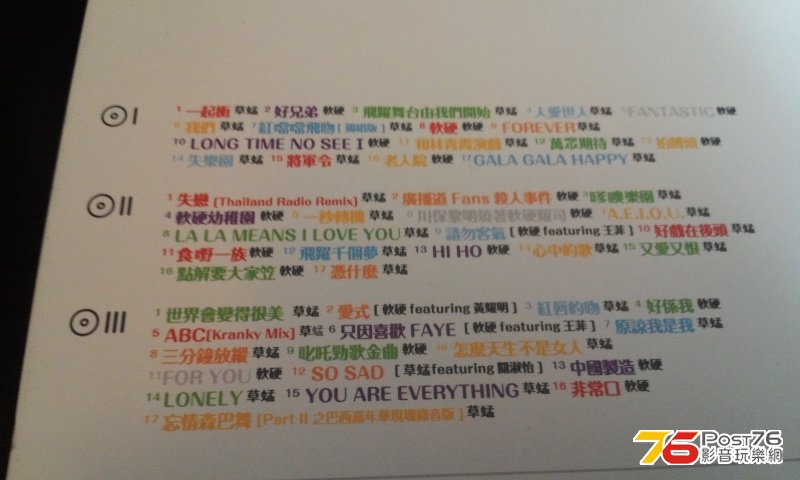 I 1 一起衝 草蜢 2 好兄弟 軟硬 3 飛躍舞台由我們開始 草蜢 4 人愛世人 草蜢 5 FANTASTIC 軟硬
6 我們 草蜢 7 紅噹噹飛吻 草蜢 8 軟硬 軟硬 9 FOREVER 草蜢
10 LONG TIME NO SEE I 軟硬 11 和林青霞演戲 草蜢 12 萬眾期待 草蜢 13 拍膊頭 軟硬
14 失樂園 草蜢 15 將軍令 草蜢 16 老人院 軟硬 17 GALA GALA HAPPY 草蜢
II 1 失戀 [Thailand Radio Remix] 草蜢 2 廣播道 Fans 殺人事件 軟硬 3 嗲噢樂園 草蜢
4 軟硬幼稚園 軟硬 5 一秒轉機 草蜢 6 川保黎明燒著軟硬屎司 軟硬 7 A.E.I.O.U. 草蜢
8 LA LA MEANS I LOVE YOU 草蜢 9 請勿客氣 [ 軟硬 featuring 王菲 ] 10 好戲在後頭 草蜢
11 食嘢一族 軟硬 12 飛躍千個夢 草蜢 13 HI HO 軟硬 14 心中的歌 草蜢 15 又愛又恨 草蜢
16 點解要大家笠 軟硬 17 憑什麼 草蜢
III 1 世界會變得很美 草蜢 2 愛式 [ 軟硬 featuring 黃耀明 ] 3 紅唇的吻 草蜢 4 好係我 軟硬
5 ABC[Kranky Mix] 草蜢 6 只因喜歡 FAYE [ 軟硬 featuring 王菲 ] 7 原諒我是我 草蜢
8 三分鐘放縱 草蜢 9 叱吒勁歌金曲 軟硬 10 怎麼天生不是女人 草蜢
11 FOR YOU 軟硬 12 SO SAD [ 草蜢 featuring 關淑怡 ] 13 中國製造 軟硬
14 LONELY 草蜢 15 YOU ARE EVERYTHING 草蜢 16 非常口 軟硬
17 忘情森巴舞 [Part II 之巴西嘉年華現場錄音版] 草蜢
76 Post76
影音玩樂網